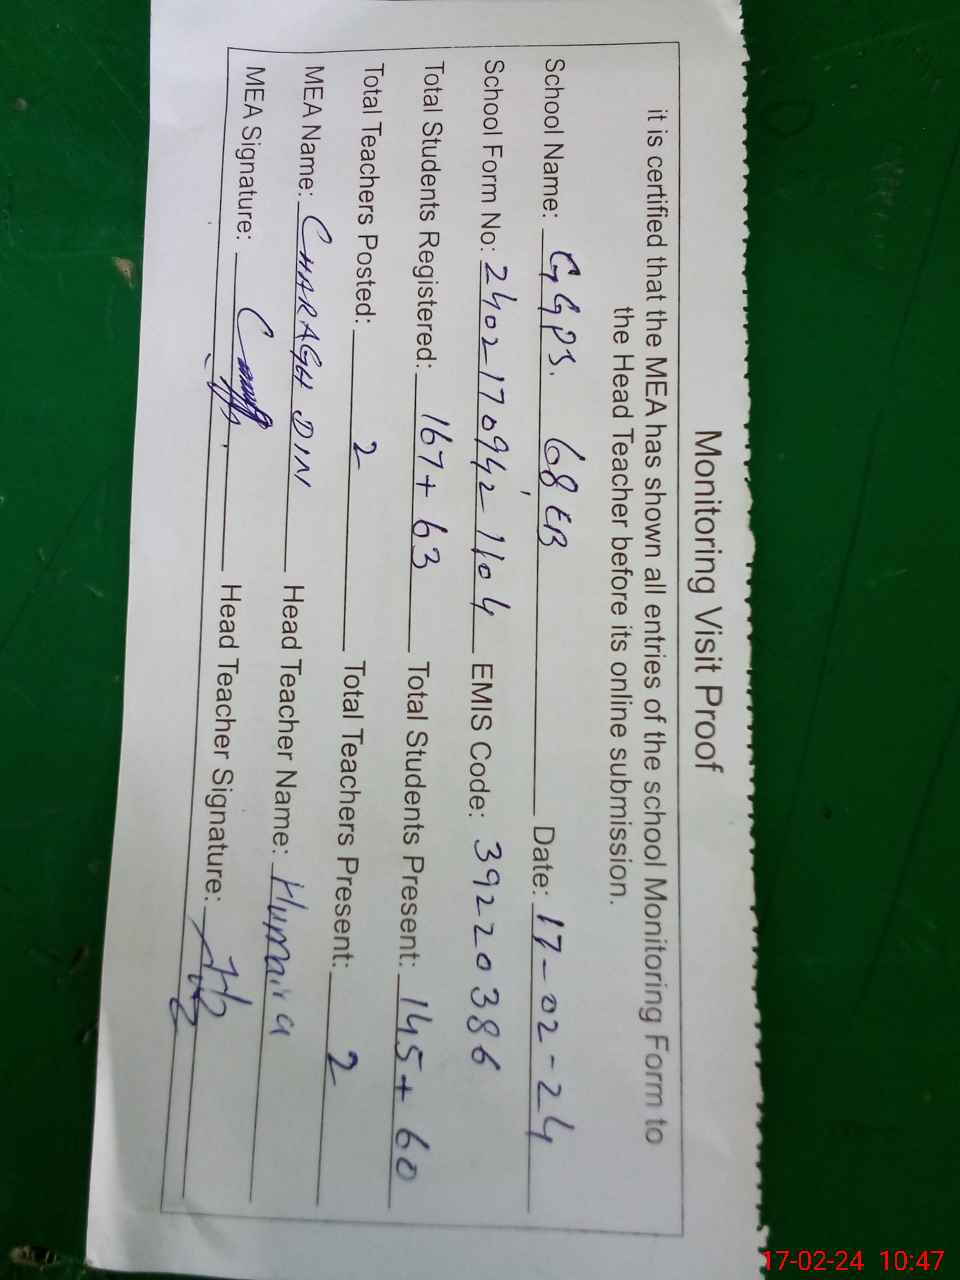 Monitoring Visit Proof
it is certified that the MEA has shown all entries of the school Monitoring Form to
the Head Teacher before its online submission.
School Name: GGPS. 68 EB Date: 17-02-24
School Form No: 2402170942 1104 EMIS Code: 39220386
Total Students Registered: 167 + 63 Total Students Present: 145 + 60
Total Teachers Posted: 2 Total Teachers Present: 2
MEA Name: CHARAGH DIN Head Teacher Name: Humaira
MEA Signature: Head Teacher Signature:
17-02-24 10:47